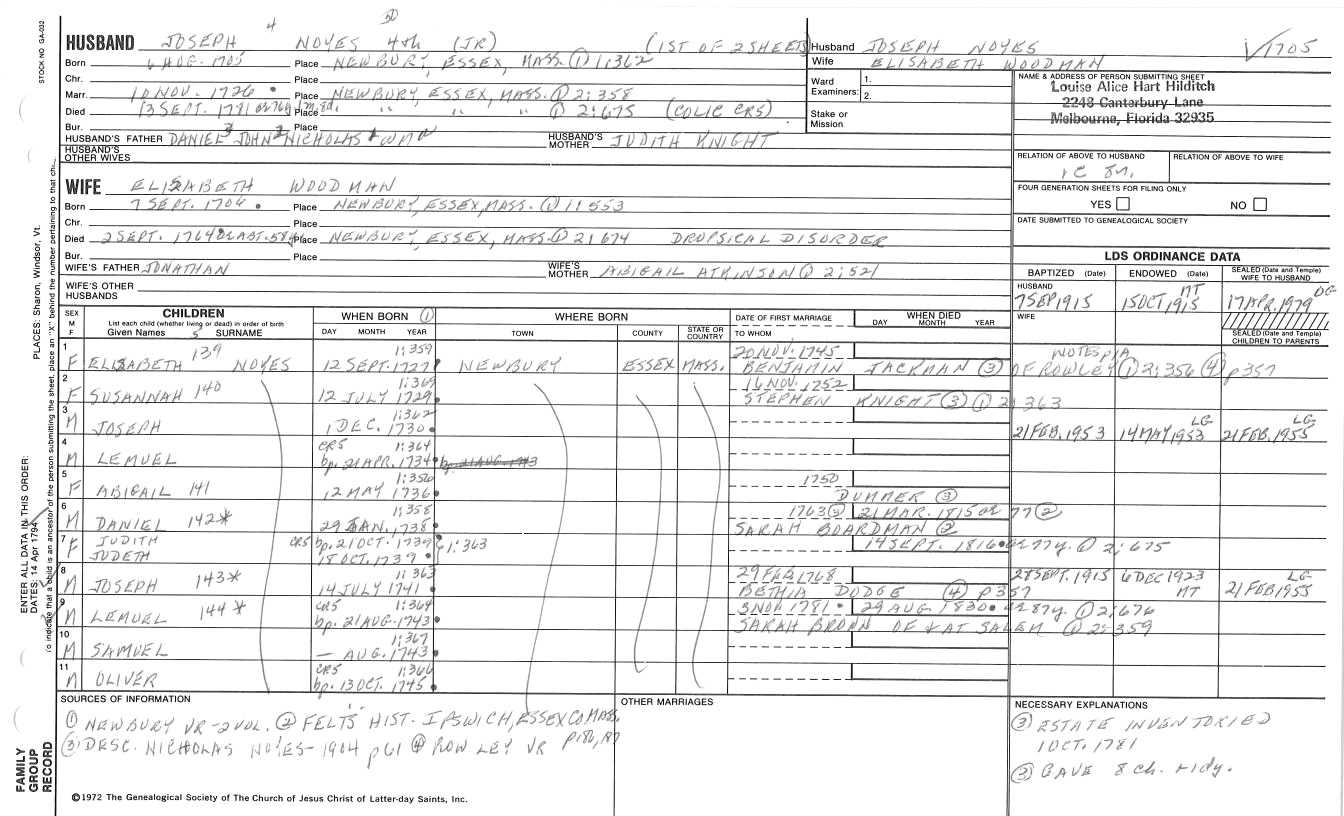 STOCK NO. GA-032
4 50
HUSBAND JOSEPH NOYES 4th (JR) (1ST OF 2 SHEETS)
Born 6 AUG. 1705 Place NEWBURY, ESSEX, MASS. ① 1:362
Chr. Place
Marr. 10 NOV. 1726 Place NEWBURY, ESSEX, MASS. ① 2:358
Died 13 SEPT. 1781 Place " " ① 2:675 (COLIC CR5)
Bur. Place
HUSBAND'S FATHER DANIEL3 JOHN2 NICHOLAS1 HUSBAND'S MOTHER JUDITH KNIGHT
HUSBAND'S OTHER WIVES
Husband JOSEPH NOYES
Wife ELISABETH WOODMAN
Ward Examiners: 1. 2.
Stake or Mission
√1705
NAME & ADDRESS OF PERSON SUBMITTING SHEET
Louise Alice Hart Hilditch
2248 Canterbury Lane
Melbourne, Florida 32935
RELATION OF ABOVE TO HUSBAND RELATION OF ABOVE TO WIFE
1C 8n.
FOUR GENERATION SHEETS FOR FILING ONLY
YES NO
DATE SUBMITTED TO GENEALOGICAL SOCIETY
WIFE ELISABETH WOODMAN
Born 7 SEPT. 1706 Place NEWBURY, ESSEX, MASS. ① 1:553
Chr. Place
Died 2 SEPT. 1764 Place NEWBURY, ESSEX, MASS. ① 2:674 DROPSICAL DISORDER
Bur. Place
WIFE'S FATHER JONATHAN WIFE'S MOTHER ABIGAIL ATKINSON ① 2:521
WIFE'S OTHER HUSBANDS
LDS ORDINANCE DATA
BAPTIZED (Date) ENDOWED (Date) SEALED (Date and Temple) WIFE TO HUSBAND
HUSBAND 7 SEP 1915 15 OCT, 1915 MT 17 APR, 1979 DC
WIFE
SEALED (Date and Temple) CHILDREN TO PARENTS
SEX M F
CHILDREN
List each child (whether living or dead) in order of birth
Given Names 5 SURNAME
WHEN BORN ①
DAY MONTH YEAR
WHERE BORN
TOWN COUNTY STATE OR COUNTRY
DATE OF FIRST MARRIAGE
TO WHOM
WHEN DIED
DAY MONTH YEAR
1 F ELISABETH 139 NOYES 1:359 12 SEPT. 1727 NEWBURY ESSEX MASS. 20 NOV. 1745 BENJAMIN JACKMAN ③ OF ROWLEY ① 2:356 ④ p357
2 F SUSANNAH 140 1:369 12 JULY 1729 16 NOV. 1752 STEPHEN KNIGHT ③ ① 2:363
3 M JOSEPH 1:362 1 DEC. 1730 21 FEB. 1953 14 MAY 1953 LG 21 FEB. 1955 LG
4 M LEMUEL CR5 1:364 bp. 21 APR. 1734 bp. 21 AUG. 1743
5 F ABIGAIL 141 1:356 12 MAY 1736 1750 DUMMER ③
6 M DANIEL 142* 1:358 29 JAN. 1738 1763 ② 21 MAR. 1815 or 77 ② SARAH BOARDMAN ②
7 F JUDITH JUDETH CR5 bp. 21 OCT. 1739 18 OCT. 1739 1:363 14 SEPT. 1816 ae 77y. ① 2:675
8 M JOSEPH 143* 1:363 14 JULY 1741 29 FEB 1768 BETHIA DODGE ④ p357 28 SEPT. 1915 6 DEC 1923 MT 21 FEB 1955 LG
9 M LEMUEL 144* CR5 1:364 bp. 21 AUG. 1743 3 NOV 1781 29 AUG 1830 ae 87y. ① 2:676 SARAH BROWN OF & AT SALEM ① 2:359
10 M SAMUEL 1:367 — AUG. 1743
11 M OLIVER CR5 1:366 bp. 13 OCT. 1745
SOURCES OF INFORMATION
① NEWBURY VR - 2 VOL. ② FELTS HIST. IPSWICH, ESSEX CO MASS.
③ DESC. NICHOLAS NOYES - 1904 p61 ④ ROWLEY VR
OTHER MARRIAGES
NECESSARY EXPLANATIONS
③ ESTATE INVENTORIED
1 OCT. 1781
② GAVE 8 ch.
©1972 The Genealogical Society of The Church of Jesus Christ of Latter-day Saints, Inc.
FAMILY GROUP RECORD
ENTER ALL DATA IN THIS ORDER:
DATES: 14 Apr 1794
PLACES: Sharon, Windsor, Vt.
To indicate that a child is an ancestor of the person submitting the sheet, place an "X" behind the number pertaining to that ch